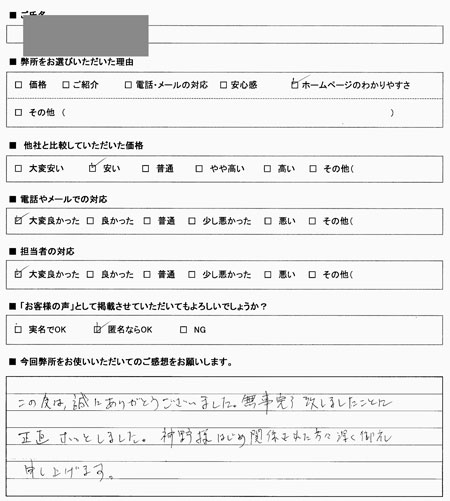 ■ ご氏名
■ 弊所をお選びいただいた理由
□ 価格 □ ご紹介 □ 電話・メールの対応 □ 安心感 ☑ ホームページのわかりやすさ
□ その他 ( )
■ 他社と比較していただいた価格
□ 大変安い ☑ 安い □ 普通 □ やや高い □ 高い □ その他(
■ 電話やメールでの対応
☑ 大変良かった □ 良かった □ 普通 □ 少し悪かった □ 悪い □ その他(
■ 担当者の対応
☑ 大変良かった □ 良かった □ 普通 □ 少し悪かった □ 悪い □ その他(
■ 「お客様の声」として掲載させていただいてもよろしいでしょうか?
□ 実名でOK ☑ 匿名ならOK □ NG
■ 今回弊所をお使いいただいてのご感想をお願いします。
この度は、誠にありがとうございました。無事完了致しましたことに
正直 ホッとしました。 様はじめ関係された方々深く御礼
申し上げます。